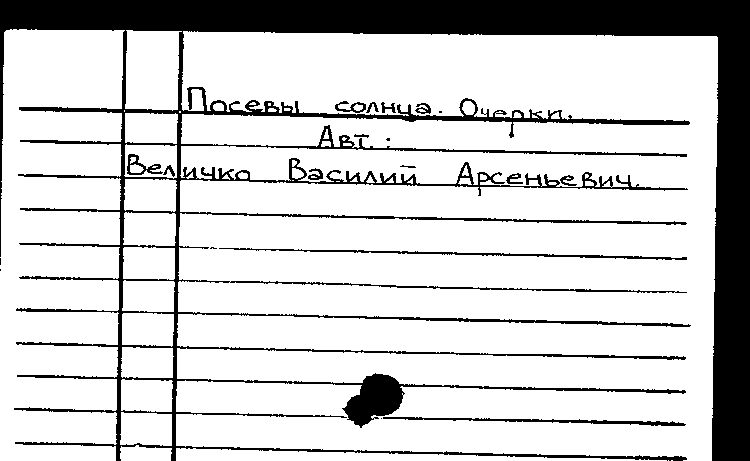 Посевы солнца. Очерки.
Авт. :
Величко Василий Арсеньевич.